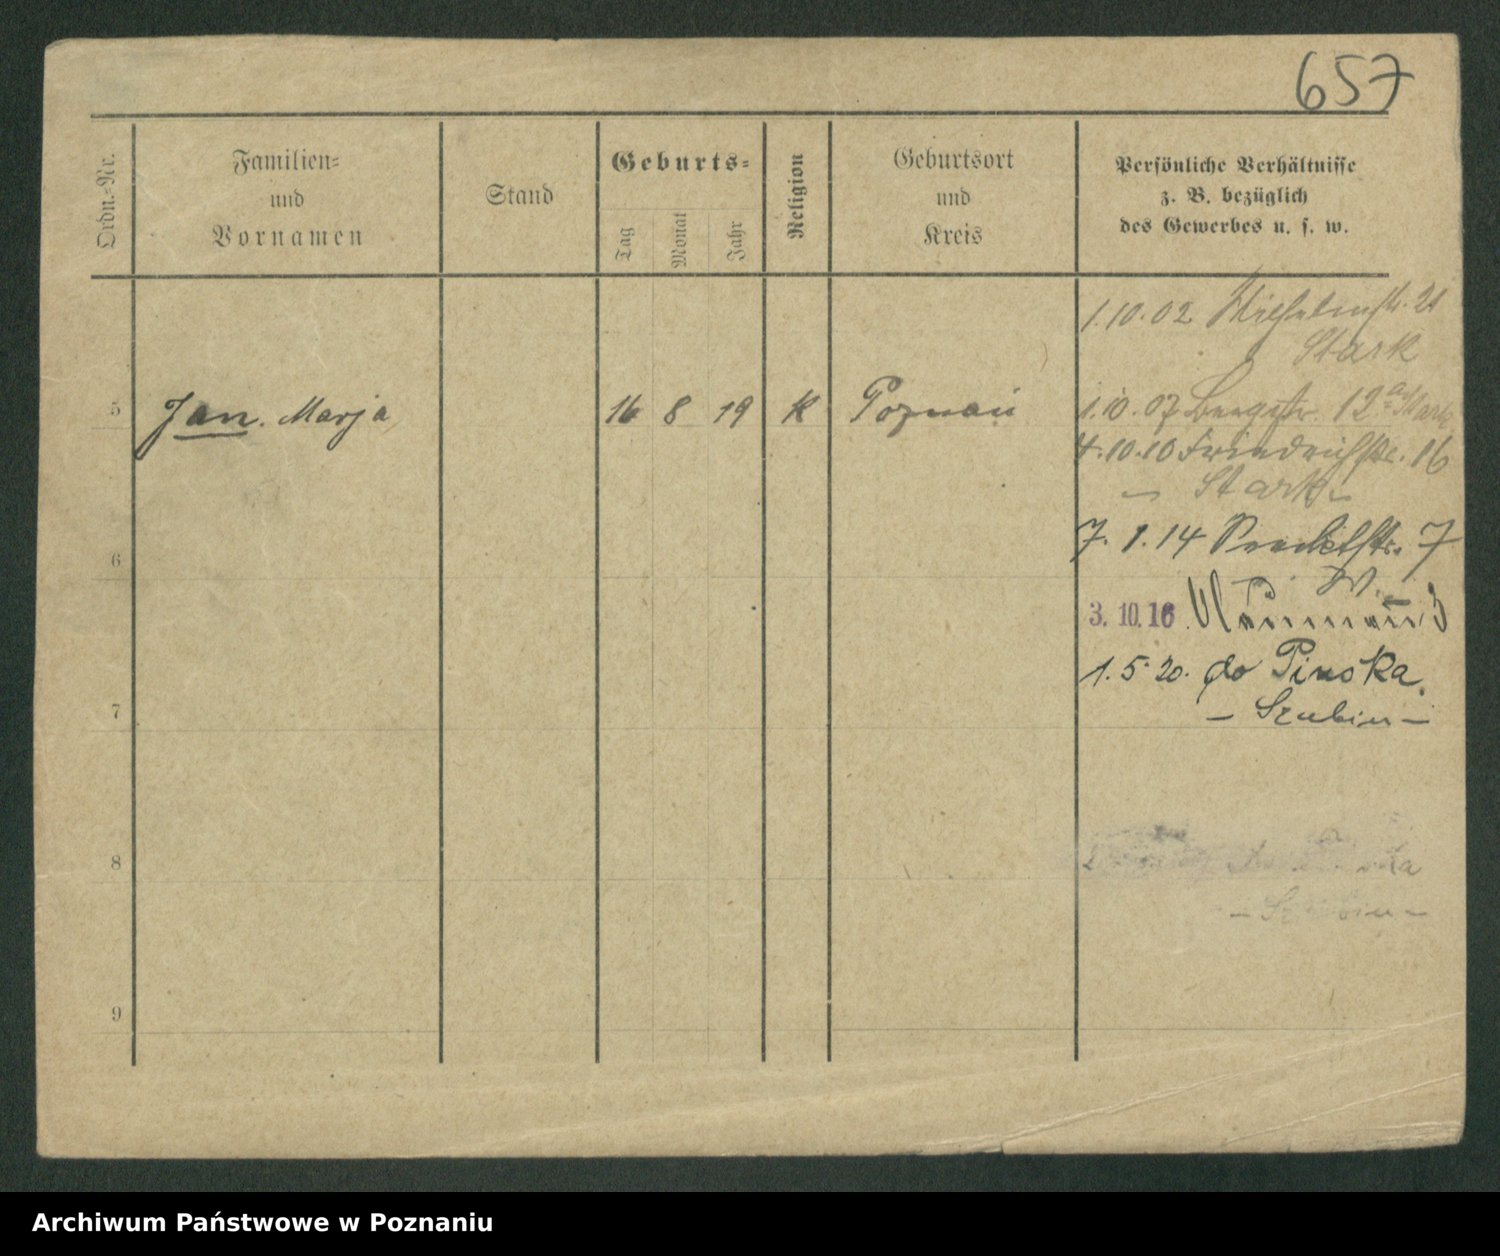 657
Ordn.-Nr.
Familien-
und
Vornamen
Stand
Geburts-
Tag
Monat
Jahr
Religion
Geburtsort
und
Kreis
Persönliche Verhältnisse
z. B. bezüglich
des Gewerbes u. s. w.
1.10.02 Wilhelmstr. 21
Stark
5 Jan. Marja 16 8 19 K Poznań
1.10.07 Bergstr. 12a
4.10.10 Friedrichstr. 16
– Stark –
6
7. 1. 14 7
W.
3. 10. 16
1. 5. 20. do Pinska.
7
– Szubin –
8
– Szubin –
9
Archiwum Państwowe w Poznaniu